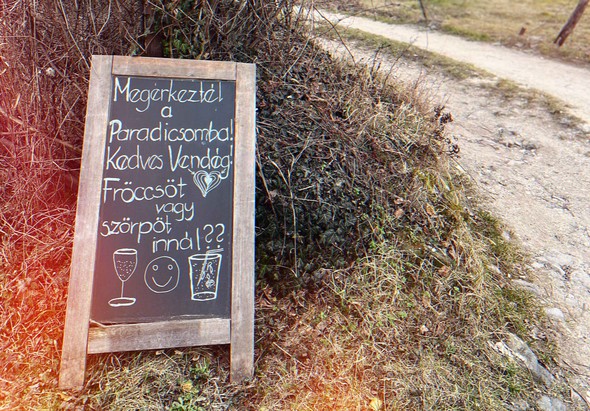 Megérkeztél
a
Paradicsomba!
Kedves Vendég!
Fröccsöt
vagy
szörpöt
innál??